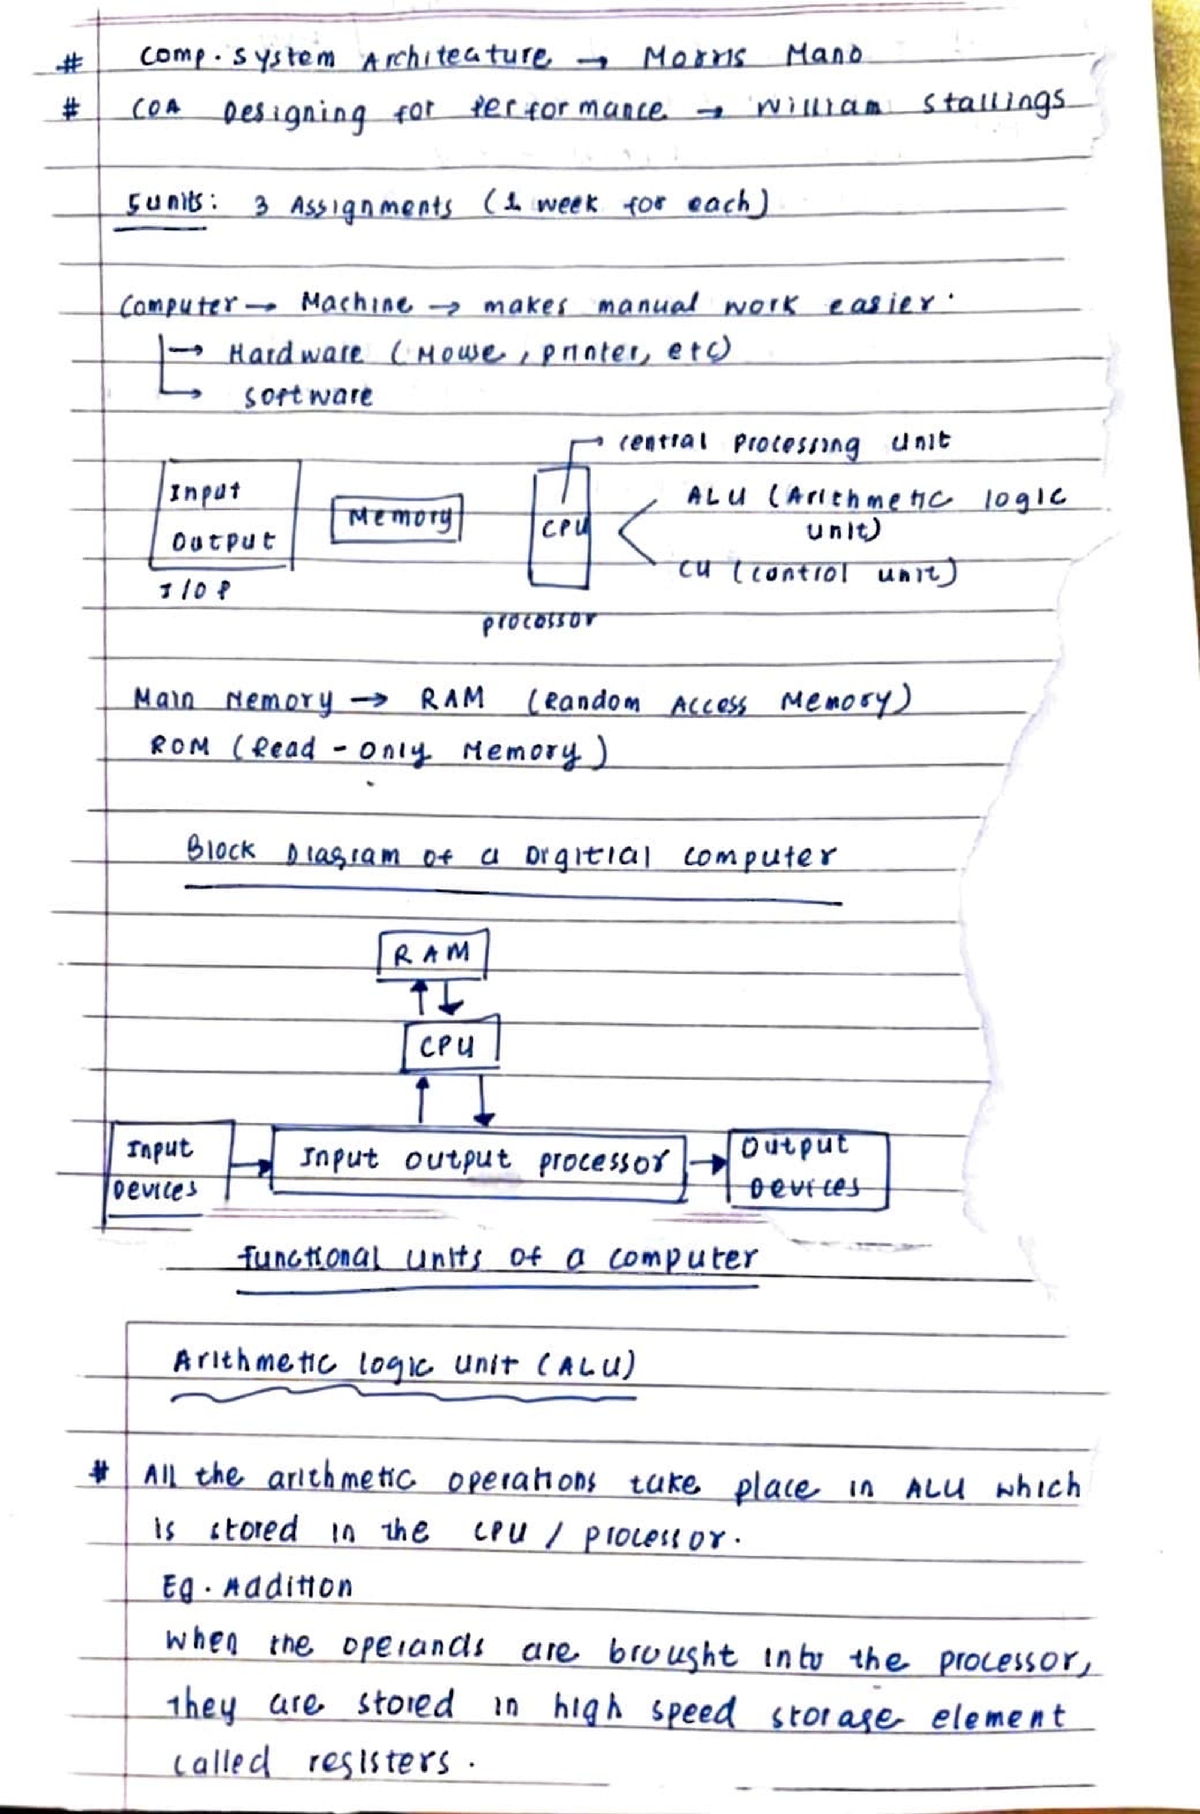 # Comp. System Architecture → Morris Mano
# COA Designing for Performance → William Stallings
5 units: 3 Assignments (1 week for each)
Computer → Machine → makes manual work easier.
→ Hardware (Mouse, printer, etc)
→ Software
→ Central Processing Unit
Input
Output
I/O P
Memory
CPU
processor
ALU (Arithmetic logic
unit)
CU (control unit)
Main Memory → RAM (Random Access Memory)
ROM (Read-Only Memory)
Block Diagram of a Digitial Computer
RAM
CPU
Input
Devices
Input output processor
Output
Devices
functional units of a computer
Arithmetic logic unit (ALU)
# All the arithmetic operations take place in ALU which
is stored in the CPU / processor.
Eg. Addition
When the operands are brought into the processor,
they are stored in high speed storage element
called registers.